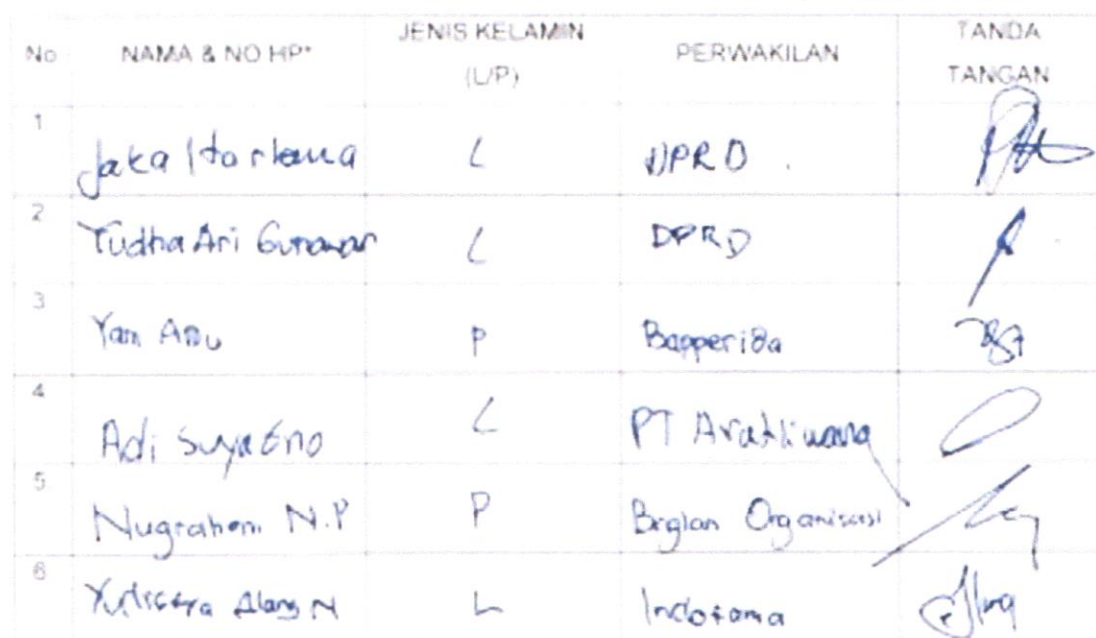 No NAMA & NO HP* JENIS KELAMIN (L/P) PERWAKILAN TANDA TANGAN
1 Jaka L DPRD
2 Yudha Ari Gunawan L DPRD
3 Yani P Bapperida
4 Adi Suyatno L PT
5 Nugraheni N.P P Bagian Organisasi
6 Alang N L Indotama